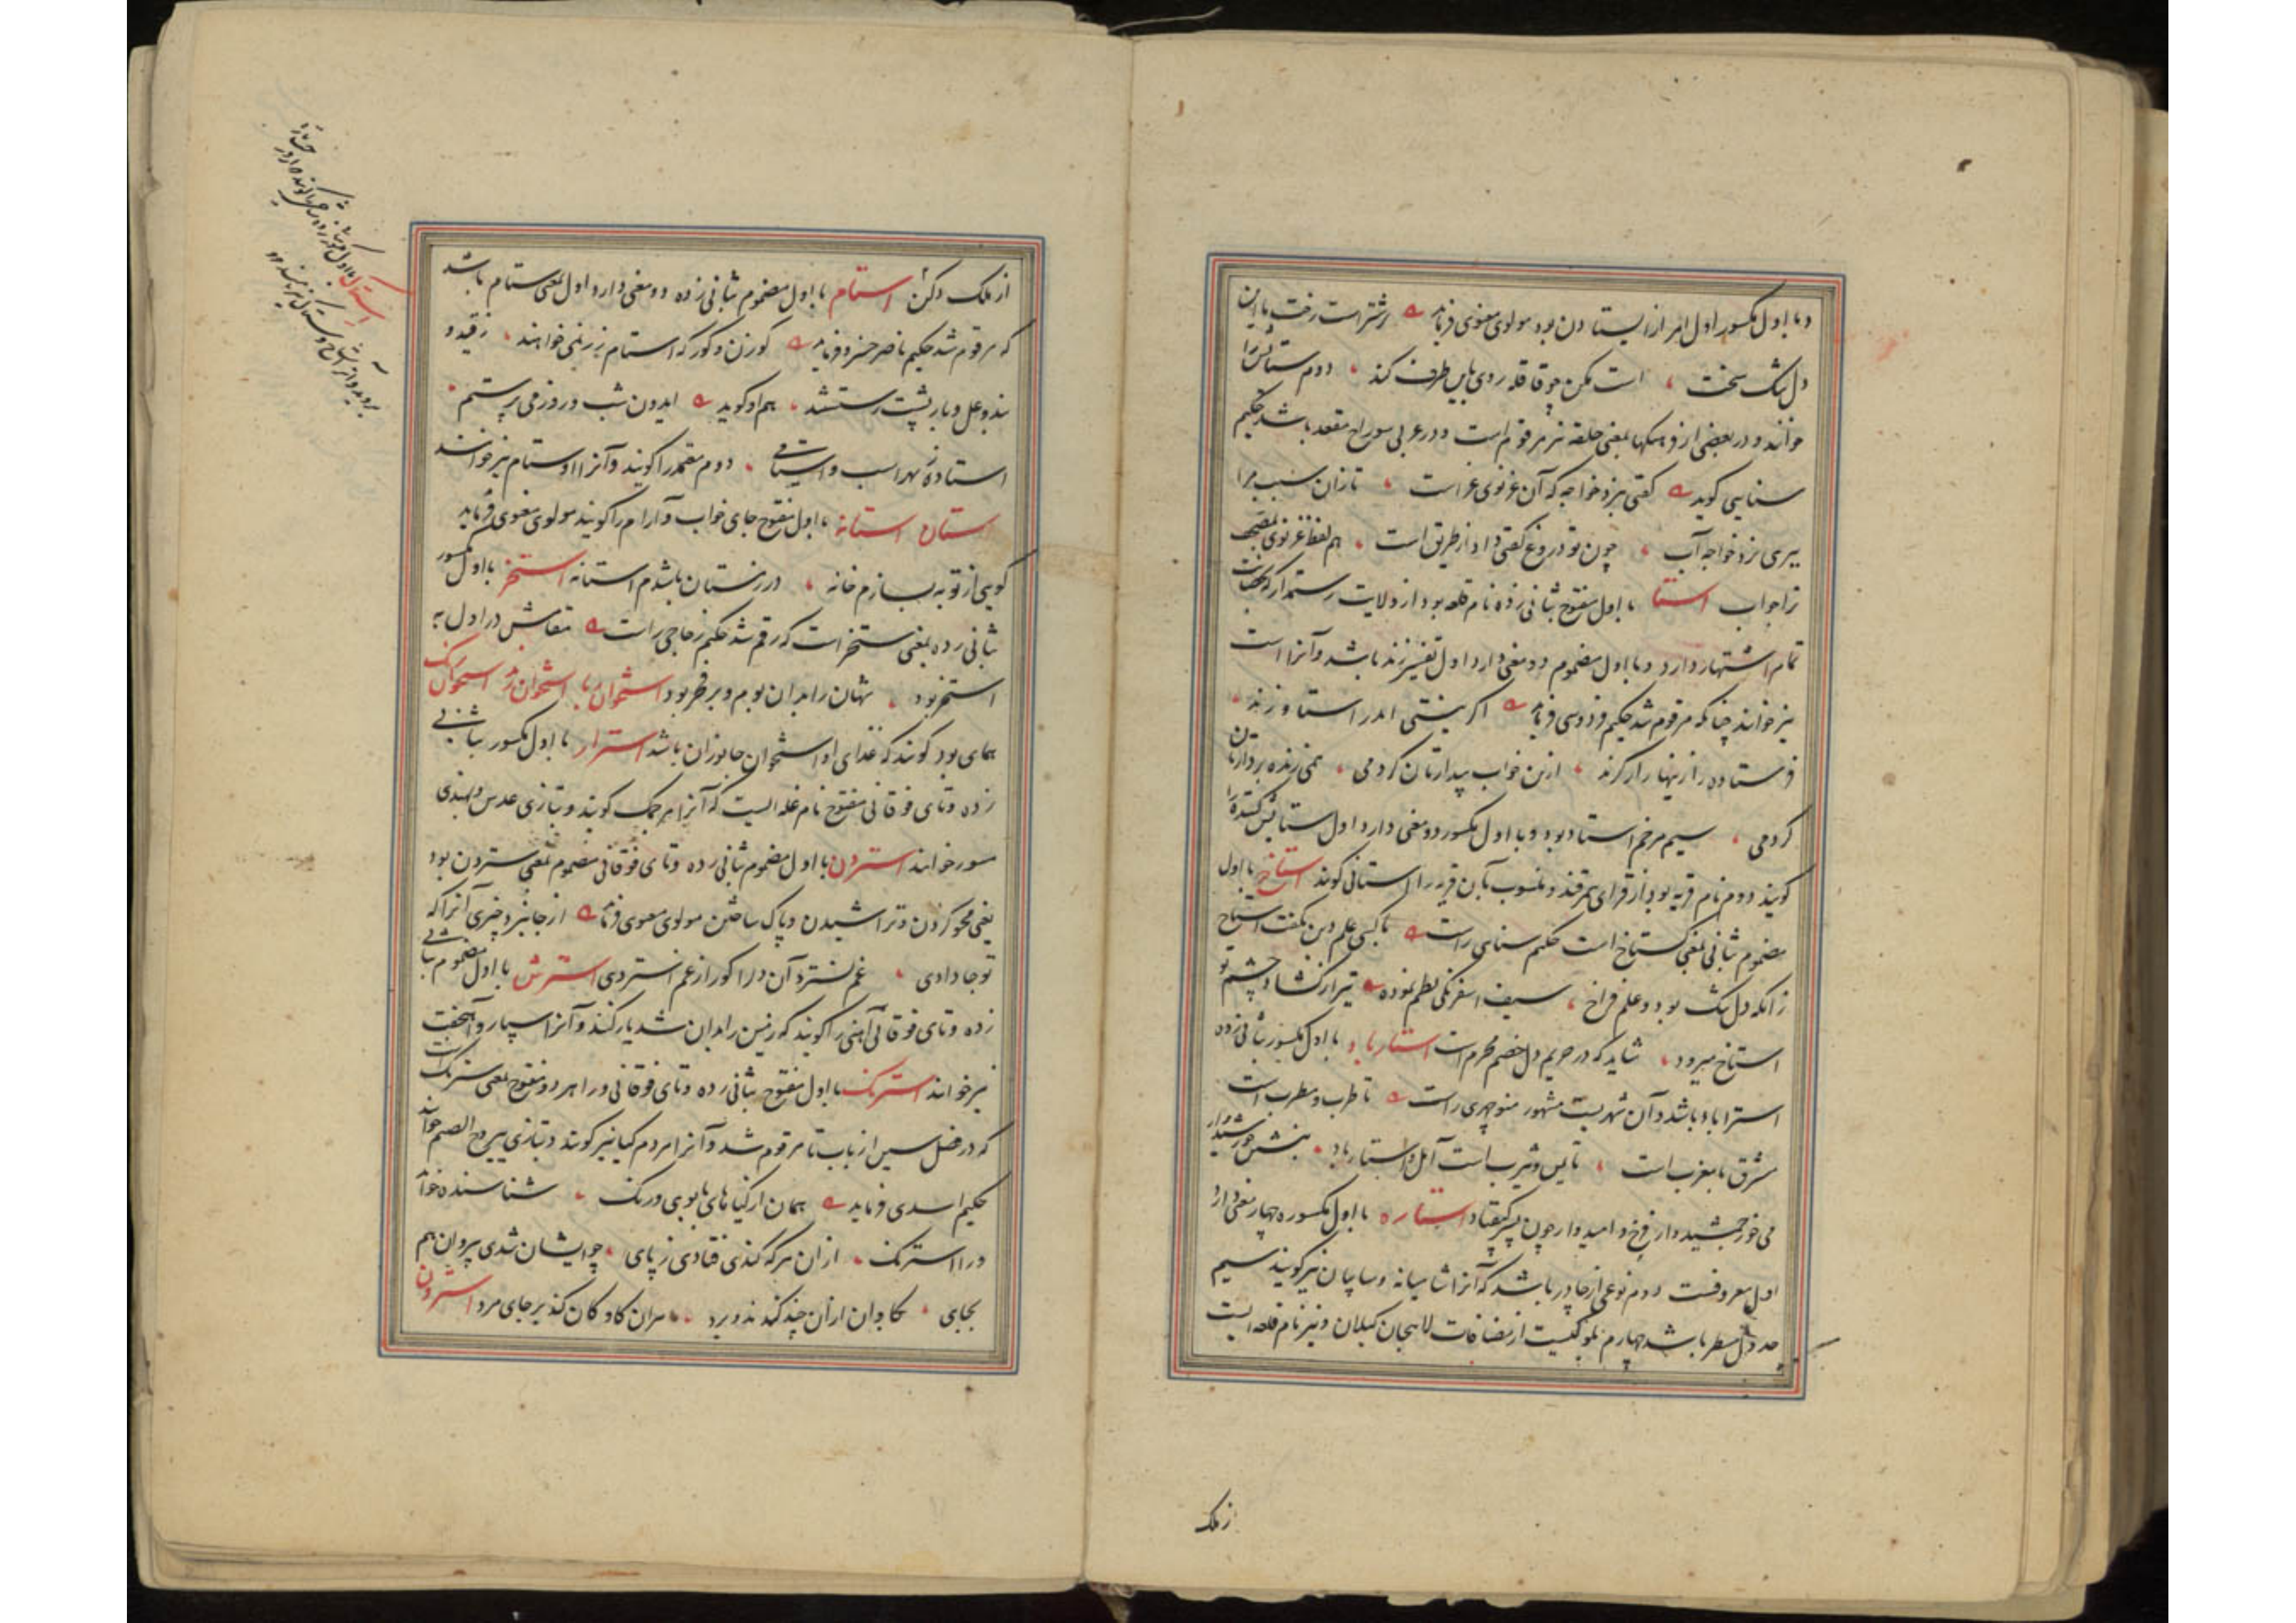 و با اول مکسور اول امر از ایستادن بود مولوی معنوی فرماید اشتر است رخت با این
دل شک سخت است مکن چو قافله روی باین طرف کند دوم ستایش را
خوانند و در بعضی از فرهنگها بمعنی حلقه نیز مرقوم است و در عربی سوراخ مقعد باشد حکیم
سنایی گوید گفتی بنزد خواجه که آن غزنوی غراست تا زان سبب مرا
ببری نزد خواجه آب چون تو دروغ گفتی و او از طریق است هم لفظ غزنوی بتصحیف
تراجواب استا با اول مفتوح بثانی زده نام قلعه بود از ولایت رستمدار که بحصانت
تمام اشتهار دارد و با اول مضموم دو معنی دارد اول تفسیر زند باشد و آنرا است
نیز خوانند چنانکه مرقوم شد حکیم فردوسی فرماید اگر نیستی اندر استا و زند
فرستاده را زینهار از گزند ازین خواب بیدارتان کردمی همی زنده بر دارتان
کردمی سیم مرخم استاد بود و با اول مکسور دو معنی دارد اول ستایش کننده را
گویند دوم نام قریه بود از قرای سمرقند و منسوب بآن قریه را استانی گویند استاخ با اول
مضموم بثانی بمعنی گستاخ است حکیم سنایی راست با کسی علم دین نگفت استاخ
زانکه دل تنگ بود و علم فراخ سیف اسفرنگی نظم نموده تیر از گشاد چشم تو
استاخ میرود شاید که در حریم دل خصم محرم است استارباد با اول مکسور بثانی زده
استراباد باشد و آن شهریست مشهور منوچهری راست تا طرب و مطرب است
مشرق تا مغرب است تا یمن و یثرب است آمل و استارباد بنشین خورشیدوار
می خور جمشیدوار فرخ و امیدوار چون پسر کیقباد استاره با اول مکسوره چهار معنی دارد
اول معروفست دوم نوعی از چادر باشد که آنرا شامیانه و سایبان نیز گویند سیم
جدول مسطر باشد چهارم بلوکیست از مضافات لاهیجان گیلان و نیز نام قلعه ایست
ز ملک
از ملک دکن استام با اول مضموم بثانی زده دو معنی دارد اول بمعنی ستام باشد
که مرقوم شد حکیم ناصر خسرو فرماید گوزن و گور که استام زر نمی خواهند ز قید و
بند و غل و بار پشت رستستند هم او گوید ایدون شب و روز می پرستم
استاده بر اسب و استامی دوم معتمد را گویند و آنرا اوستام نیز خوانند
استان استانه با اول مفتوح جای خواب و آرام را گویند مولوی معنوی فرماید
گویی از توبه بسازم خانه در زمستان باشدم استانه استخر با اول مکسور
بثانی زده بمعنی ستخر است که رقم شد حکیم زجاجی راست مقامش در اول به
استخر بود شهان را بدان بوم و بر فخر بود استخوان ربا استخوان رند استخوان رنگ
همای بود گویند که غذای او استخوان جانوران باشد استرار با اول مکسور بثانی
زده و تای فوقانی مفتوح نام غله ایست که آنرا مرجمک گویند و بتازی عدس و بهندی
مسور خوانند استردن با اول مضموم بثانی زده و تای فوقانی مضموم بمعنی ستردن بود
یعنی محو کردن و تراشیدن و پاک ساختن مولوی معنوی فرماید از جا نبرد چیزی آنرا که
تو جا دادی غم نسترد آن دل را کو را ز غم استردی استرش با اول مضموم بثانی
زده و تای فوقانی آهنی را گویند که زمین را بدان شدیار کنند و آنرا سپار و آهنجفت
نیز خوانند استرنگ با اول مفتوح بثانی زده و تای فوقانی و را هر دو مفتوح بمعنی سترنگ است
که در فصل سین از باب تا مرقوم شد و آنرا مردم گیا نیز گویند و بتازی یبروح الصنم خوانند
حکیم اسدی فرماید همان از گیاهای با بوی و رنگ شناسنده خواند
ورا استرنگ از آن هر که کندی فتادی ز پای چو ایشان شدی بیروان هم
بجای بگاوان از آن چند کندند و برد سران گاوکان کند بر جای مرد استرون